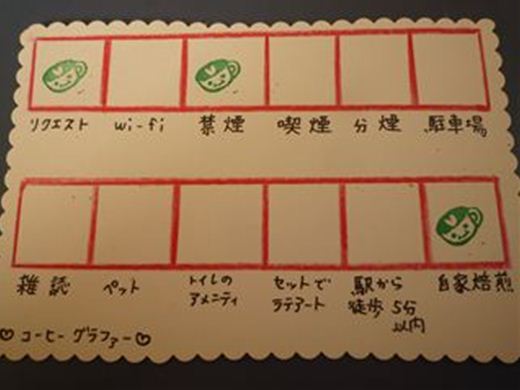 リクエスト wi-fi 禁煙 喫煙 分煙 駐車場
雑読 ペット トイレの セットで 駅から 自家焙煎
アメニティ ラテアート 徒歩5分
以内
♡コーヒーグラファー♡